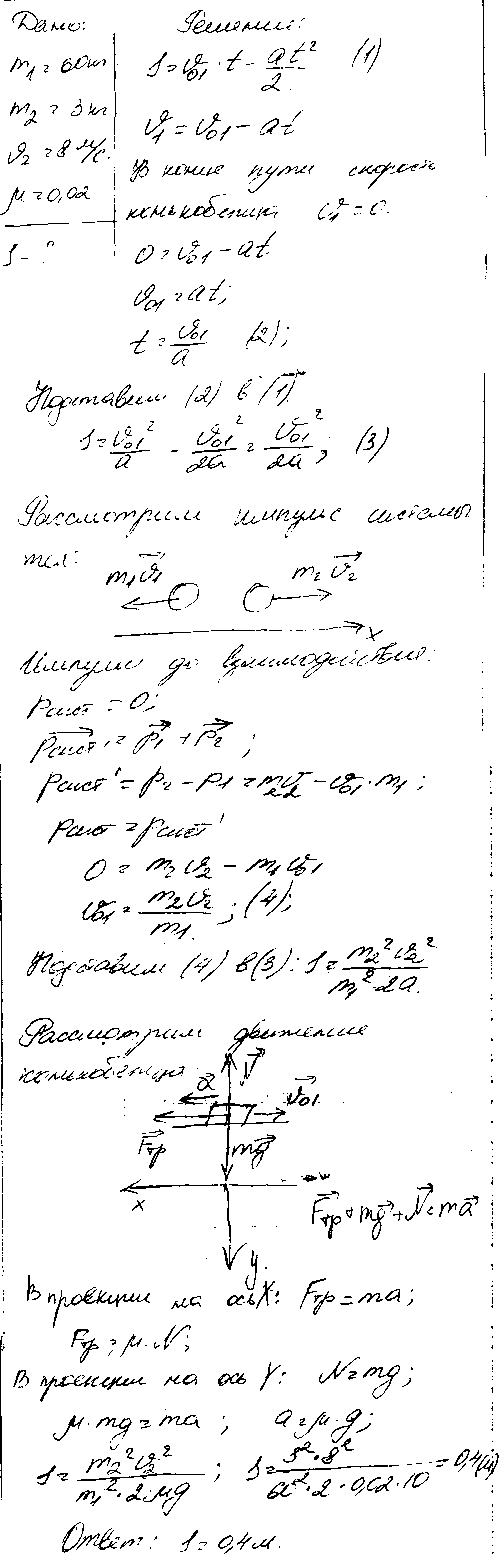 Дано:
Решение:
m₁ = 60 кг
S = v₀₁ · t − at²/2 (1)
m₂ = 3 кг
v₁ = v₀₁ − at
v₂ = 8 м/с.
В конце пути скорость
μ = 0,02
конькобежца v₁ = 0.
S − ?
0 = v₀₁ − at
v₀₁ = at;
t = v₀₁/a (2);
Подставим (2) в (1)
S = v₀₁²/a − v₀₁²/2a = v₀₁²/2a; (3)
Рассмотрим импульс системы
тел:
m₁v⃗₁ m₂v⃗₂
x
Импульс до взаимодействия:
Pсист = 0;
P⃗сист' = P⃗₁ + P⃗₂;
Pсист' = P₂ − P₁ = m₂v₂ − v₀₁ · m₁;
Pсист = Pсист'
0 = m₂v₂ − m₁v₀₁
v₀₁ = m₂v₂/m₁; (4);
Подставим (4) в (3): S = m₂²v₂²/m₁² 2a.
Рассмотрим движение
конькобежца
N⃗
a⃗ v⃗₀₁
F⃗тр mg⃗
x
F⃗тр + mg⃗ + N⃗ = ma⃗
y
В проекции на ось X: Fтр = ma;
Fтр = μ · N;
В проекции на ось Y: N = mg;
μ · mg = ma; a = μ · g;
S = m₂²v₂²/m₁² · 2 · μg; S = 3² · 8²/60² · 2 · 0,02 · 10 = 0,4 (м)
Ответ: S = 0,4 м.